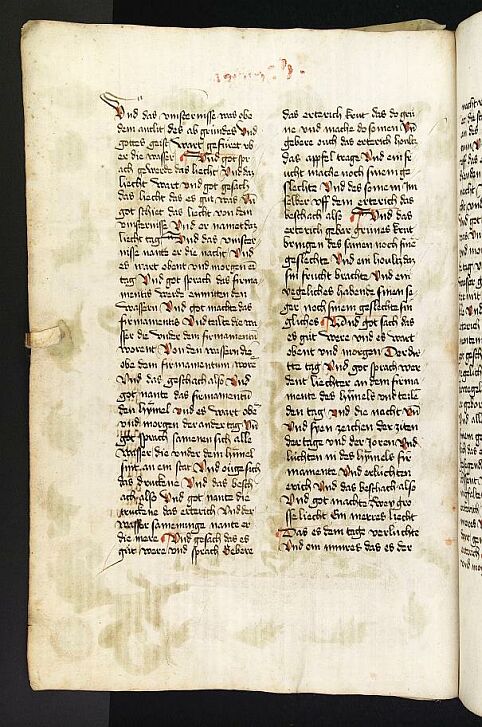 Vnd das vinsternisse was obe
dem antlit des ab grundes Vnd
gottes geist wart gefüret vf
er die wasser Vnd got spr
ach gewerde das liecht Vnd daz
liecht wart Vnd got gesach
das liecht das es gut was Vn
got schiet das liecht von dem
vinsternisse Vnd er namet daz
liecht tag Vnd das vinster
nisse nante er die nacht Vnd
es wart obent vnd morgen ein
tag Vnd got sprach die firma
mentū werde enmitten den
wassern Vnd got machet das
firmamentū Vnd teilte die wa
sser die vndre dem firmamentū
worent Von den wassern die
obe dem firmamentum wore
Vnd das geschach also Vnd
got nante das firmamentū
den hymel Vnd es wart obe
vnd morgen der ander tag Vn
got sprach samenen sich alle
wasser die vnder dem hymel
sint an ein stat Vnd ouge sich
das druckene Vnd das besch
ach also Vnd got nante die
truckene das ertterich Vnd der
wasser samenunge nante er
die mere Vnd gesach das es
gut were vnd sprach Gebere
das ertterich krut das do grü
ne vnd mache do somen Vn
gebere ouch das ertterich houltz
das appfel trage Vnd ein fr
ucht mache noch sinem ge
slechte Vnd des somen im
selber vff dem ertterich das
beschach also Vnd das
ertterich gebar grünes krut
bringen des samen noch sine
geslechte Vnd ein houltz daz
sin frucht brachte Vnd ein
yegeliches habende sinen se
ger noch sinem geslechte sin
gliches Vnd got sach das
es gut were Vnd es wart
obent vnd morgen Der dri
tte tag Vnd got sprach wer
dent liechter an dem firma
mente des hymels vnd teile
den tag vnd die nacht Vn
Vnd syen zeichen der ziten
der tage vnd der joren Vnd
lüchten in des hymels fir
mamente Vnd erlüchten
erich Vnd das beschach also
Vnd got machte zwey gro
sse liecht Ein merres liecht
Das es dem tage verlüchte
Vnd ein minres das es der